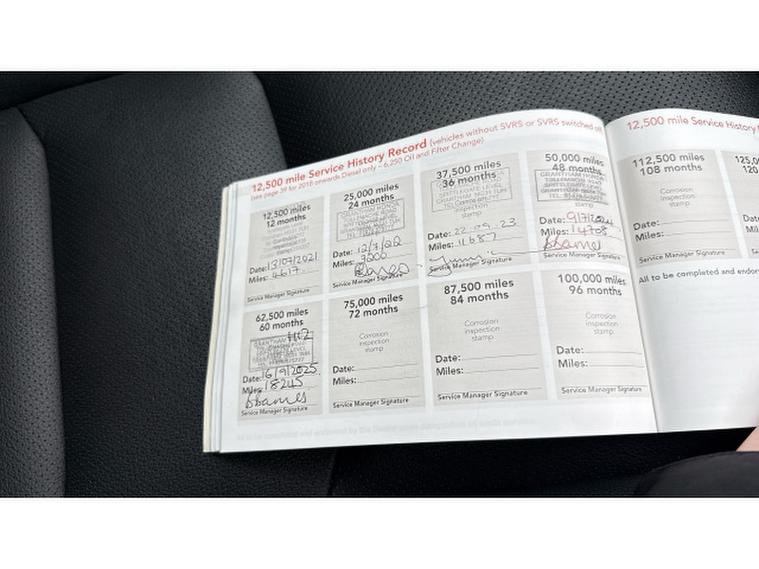 12,500 mile Service History Record (vehicles without SVRS or SVRS switched off)
(see page 39 for 2018 onwards Diesel only – 6,250 Oil and Filter Change)
12,500 miles
12 months
Date: 13/07/2021
Miles: 4617
Service Manager Signature
25,000 miles
24 months
GRANTHAM HONDA
Date: 12/7/22
Miles: 7200
Service Manager Signature
37,500 miles
36 months
SPITTLEGATE LEVEL
stamp
Date: 22.09.23
Miles: 11687
Service Manager Signature
50,000 miles
48 months
GRANTHAM HONDA
SPITTLEGATE LEVEL
Date: 9/7/2024
Miles: 14708
Service Manager Signature
62,500 miles
60 months
Date: 16/9/2025
Miles: 18245
Service Manager Signature
75,000 miles
72 months
Corrosion
inspection
stamp
Date:
Miles:
Service Manager Signature
87,500 miles
84 months
Corrosion
inspection
stamp
Date:
Miles:
Service Manager Signature
100,000 miles
96 months
Corrosion
inspection
stamp
Date:
Miles:
Service Manager Signature
12,500 mile Service History
112,500 miles
108 months
Corrosion
inspection
stamp
Date:
Miles:
Service Manager Signature
125,0
120
Da
Mi
Serv
All to be completed and endor